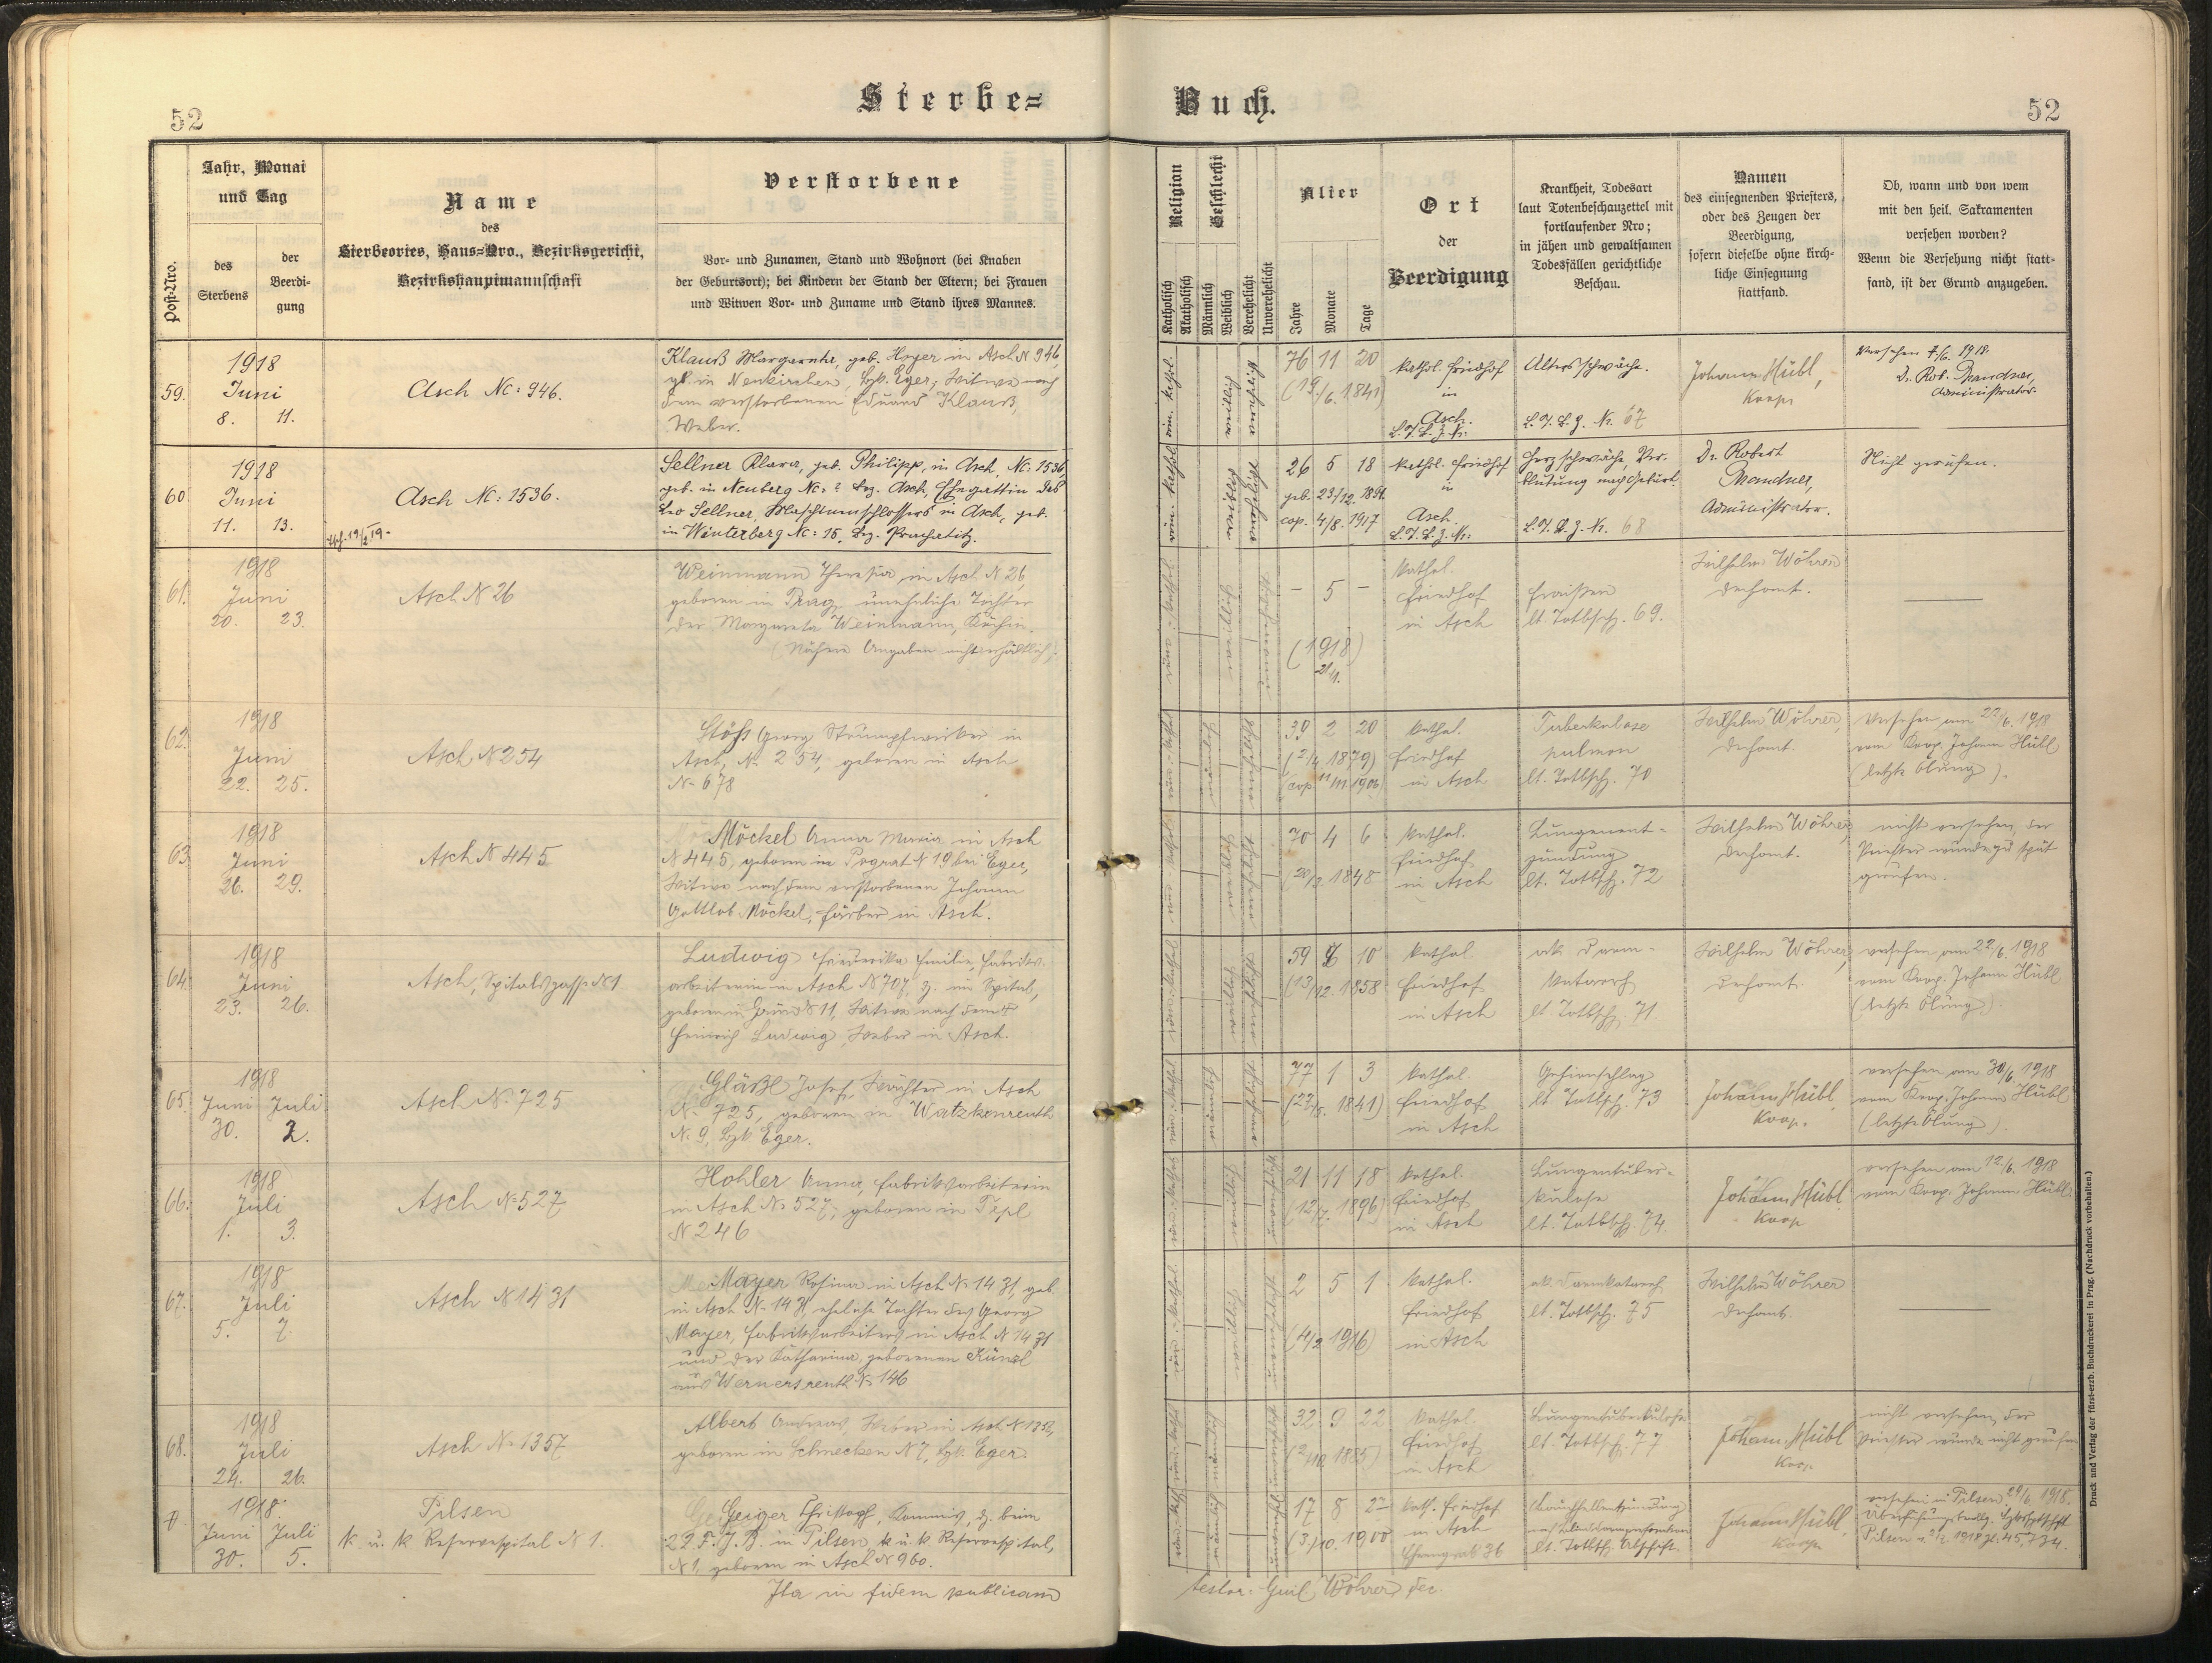 52
Sterbe=
Buch.
52
Post-Nro.
Jahr, Monat
und Tag
des
Sterbens
der
Beerdi-
gung
Name
des
Sterbeortes, Haus=Nro., Bezirksgericht,
Bezirkshauptmannschaft
Verstorbene
Vor- und Zunamen, Stand und Wohnort (bei Knaben
der Geburtsort); bei Kindern der Stand der Eltern; bei Frauen
und Witwen Vor- und Zuname und Stand ihres Mannes.
Religion
Katholisch
Akatholisch
Geschlecht
Männlich
Weiblich
Verehelicht
Unverehelicht
Alter
Jahre
Monate
Tage
Ort
der
Beerdigung
Krankheit, Todesart
laut Totenbeschauzettel mit
fortlaufender Nro;
in jähen und gewaltsamen
Todesfällen gerichtliche
Beschau.
Namen
des einsegnenden Priesters,
oder des Zeugen der
Beerdigung,
sofern dieselbe ohne kirch-
liche Einsegnung
stattfand.
Ob, wann und von wem
mit den heil. Sakramenten
versehen worden?
Wenn die Versehung nicht statt-
fand, ist der Grund anzugeben.
59.
1918
Juni
8. 11.
Asch Nc: 946.
Klauß Margaretha, geb. Hoyer in Asch N 946,
gb. in Neukirchen, Bzk. Eger, Witwe nach
dem verstorbenen Eduard Klauß,
Weber.
76 11 20
(19/6. 1841)
kathol. Friedhof
in
Asch.
L.T.B.Z. Nr.
Altersschwäche.
L.T.B.Z. Nr. 67
Johann Hübl,
Koop.
Versehen 7/6. 1918.
Dr. Rob. Prandner,
Administrator.
60
1918
Juni
11. 13.
Asch Nc: 1536.
Sellner Klara, geb. Philipp, in Asch, Nc: 1536,
geb. in Neuberg Nc: ? Bez. Asch, Ehegattin des
Leo Sellner, Maschinenschlossers in Asch, geb.
in Winterberg Nc: 16, Bez. Prachatitz.
26 5 18
geb. 23/12. 1891.
cop. 4/8. 1917
kathol. Friedhof
in
Asch.
L.T.B.Z. Nr.
Herzschwäche, Ver-
blutung nach Geburt.
L.T.B.Z. Nr. 68
Dr. Robert
Prandner,
Administrator.
Nicht gerufen.
61.
1918
Juni
20. 23.
Asch N 26
Weinmann Theresia in Asch N 26
geboren in Prag, uneheliche Tochter
der Margareta Weinmann, Köchin.
(Nähere Angaben nicht erhältlich)
– 5 –
(1918)
21/1.
kathol.
Friedhof
in Asch
Fraisen
lt. Totbsch. 69.
Wilhelm Wöhrer
Dechant.
62.
1918
Juni
22. 25.
Asch N 254
Stöhs Georg Strumpfwirker in
Asch, N. 254, geboren in Asch
N. 678
39 2 20
(2/4 1879)
cop. 11/11 1906
kathol.
Friedhof
in Asch
Tuberkulose
pulmon
lt. Totbsch. 70
Wilhelm Wöhrer,
Dechant.
Versehen am 22/6. 1918
vom Koop. Johann Hübl
(letzte Ölung).
63
1918
Juni
26. 29.
Asch N 445
Möckel Anna Maria in Asch
N 445, geboren in Pograt N 19 bei Eger,
Witwe nach dem verstorbenen Johann
Gottlob Möckel, Färber in Asch.
70 4 6
(20/2. 1848
kathol.
Friedhof
in Asch
Lungenent-
zündung
lt. Totbsch. 72
Wilhelm Wöhrer,
Dechant.
nicht versehen, der
Priester wurde zu spät
gerufen.
64.
1918
Juni
23. 26.
Asch, Spitalsgasse N 1
Ludwig Friederika Emilie, Fabriks-
arbeiterin in Asch N 707, z. im Spital,
geboren in Grün N 11, Witwe nach dem †
Heinrich Ludwig, Weber in Asch.
59 6 10
(13/12. 1858
kathol.
Friedhof
in Asch
ak. Darm-
katarrh
lt. Totbsch. 71.
Wilhelm Wöhrer,
Dechant.
versehen am 22/6. 1918
vom Koop. Johann Hübl
(letzte Ölung).
65.
1918
Juni Juli
30. 2.
Asch N. 725
Gläßl Josef, Wächter in Asch
N. 725, geboren in Watzkenreuth
N. 9, Bzk Eger.
77 1 3
(27/5. 1841)
kathol.
Friedhof
in Asch
Gehirnschlag
lt. Totbsch. 73
Johann Hübl,
Koop.
versehen am 30/6. 1918
vom Koop. Johann Hübl
(letzte Ölung).
66.
1918
Juli
1. 3.
Asch N. 527
Hohler Anna, Fabriksarbeiterin
in Asch N. 527, geboren in Tepl
N 246
21 11 18
(12/7. 1896)
kathol.
Friedhof
in Asch
Lungentuber-
kulose
lt. Totbsch. 74
Johann Hübl
Koop
versehen am 12/6. 1918
vom Koop. Johann Hübl.
67.
1918
Juli
5. 7.
Asch N 1431
Mayer Rosina in Asch N. 1431, geb.
in Asch N. 1431, eheliche Tochter des Georg
Mayer, Fabriksarbeiters in Asch N 1431
und der Katharina, geborenen Künzl
aus Wernersreuth N. 146
2 5 1
(4/2 1916)
kathol.
Friedhof
in Asch
ak. Darmkatarrh
lt. Totbsch. 75
Wilhelm Wöhrer
Dechant.
68.
1918
Juli
24. 26.
Asch N. 1357
Albert Andreas, Weber in Asch N 1357,
geboren in Schnecken N 7, Bzk. Eger.
32 9 22
(2/10. 1885)
kathol.
Friedhof
in Asch
Lungentuberkulose
lt. Totbsch. 77
Johann Hübl
Koop.
nicht versehen, der
Priester wurde nicht gerufen
1918.
Juni Juli
30. 5.
Pilsen
k. u. k. Reservespital N 1.
Geiger Christoph, Kommis, z. beim
22. F. J. B. in Pilsen k. u. k. Reservespital,
N 1, geboren in Asch N 960.
17 8 27
(3/10. 1900
kath. Friedhof
in Asch
Ehrengrab 36
Bauchfellentzündung
lt. Totbsch. Abschrift.
Johann Hübl,
Koop.
versehen in Pilsen 29/6. 1918.
Ita in fidem publicam
testor: Guil. Wöhrer, dec.
Druck und Verlag der fürst-erzb. Buchdruckerei in Prag. (Nachdruck vorbehalten.)